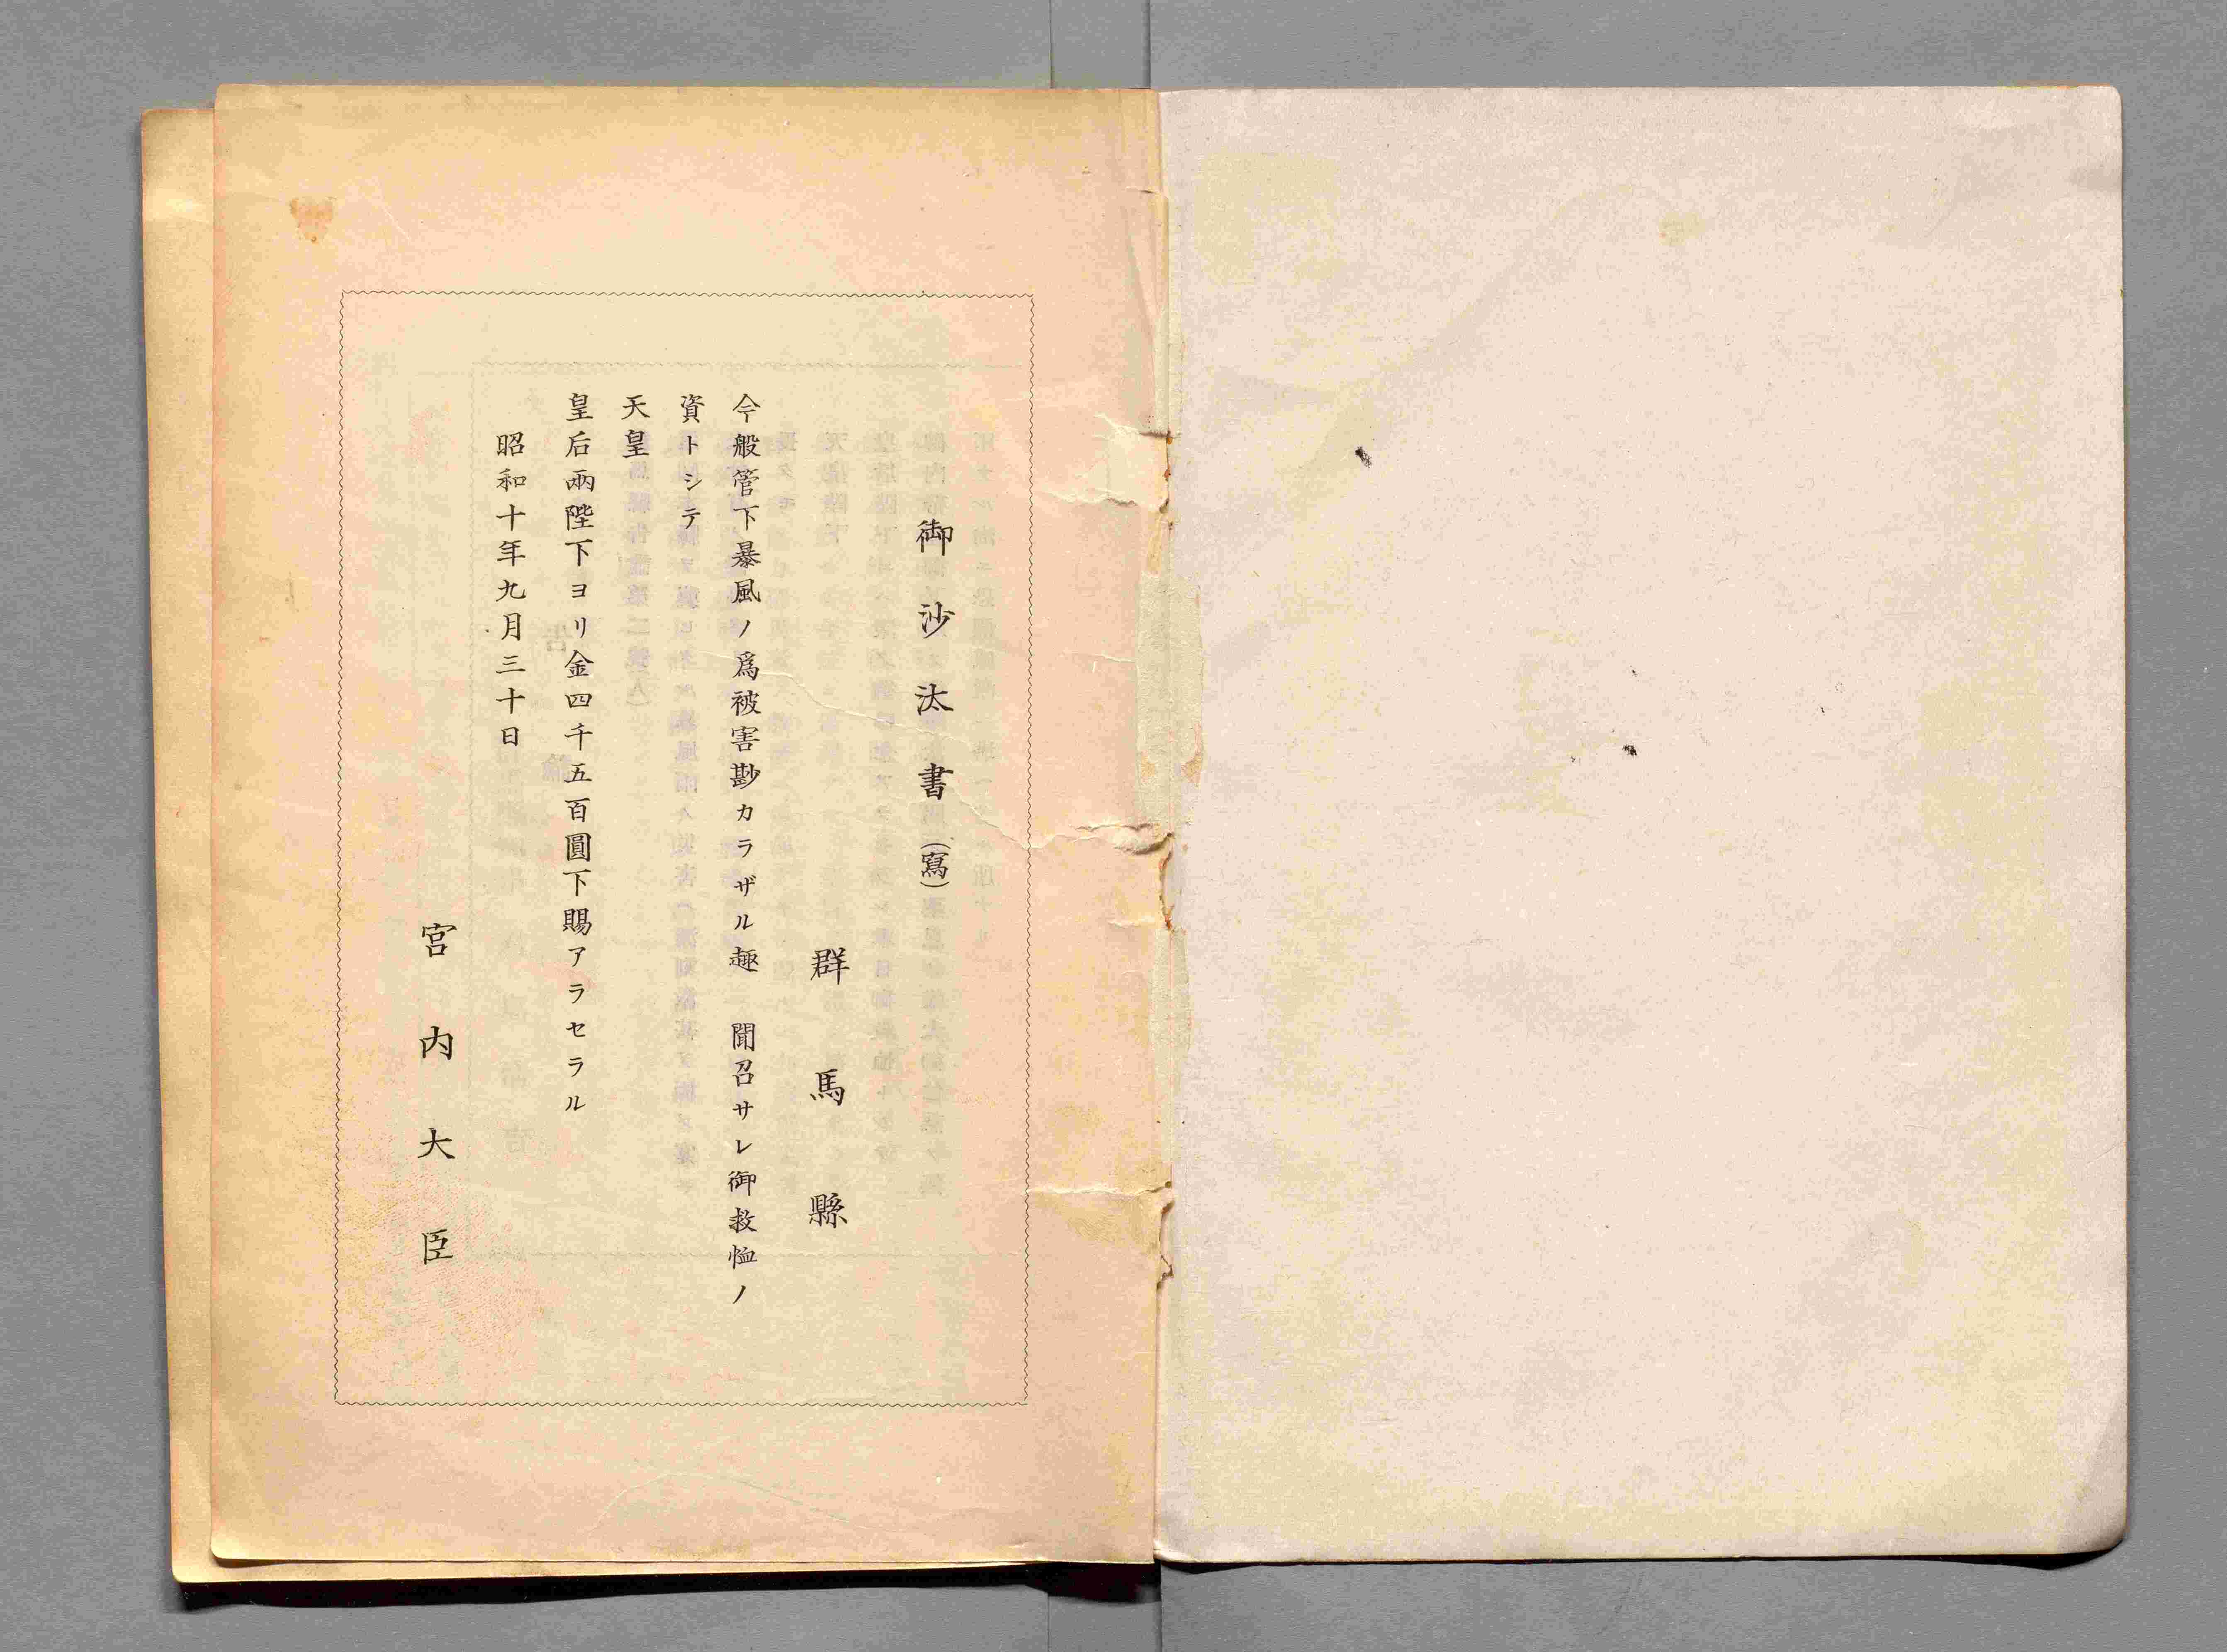 御沙汰書（寫）
群馬縣
今般管下暴風ノ爲被害尠カラザル趣　聞召サレ御救恤ノ
資トシテ
天皇
皇后兩陛下ヨリ金四千五百圓下賜アラセラル
昭和十年九月三十日
宮内大臣